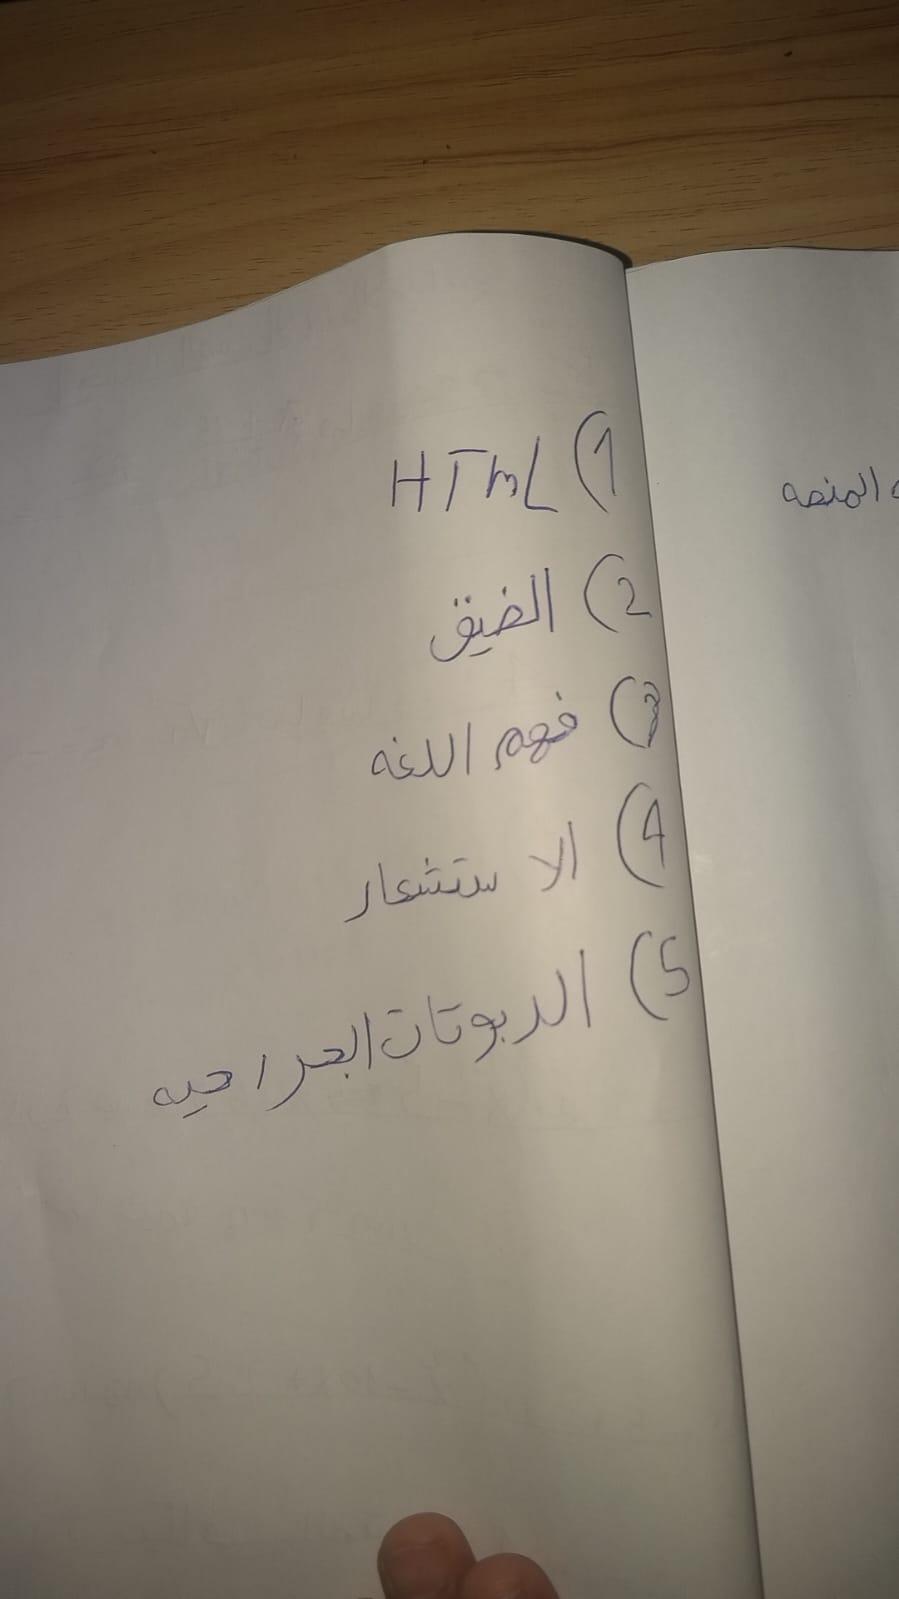 1) HTmL
2) الضيق
3) فهم اللغه
4) الاستشعار
5) الربوتات الجراحيه
المنصه